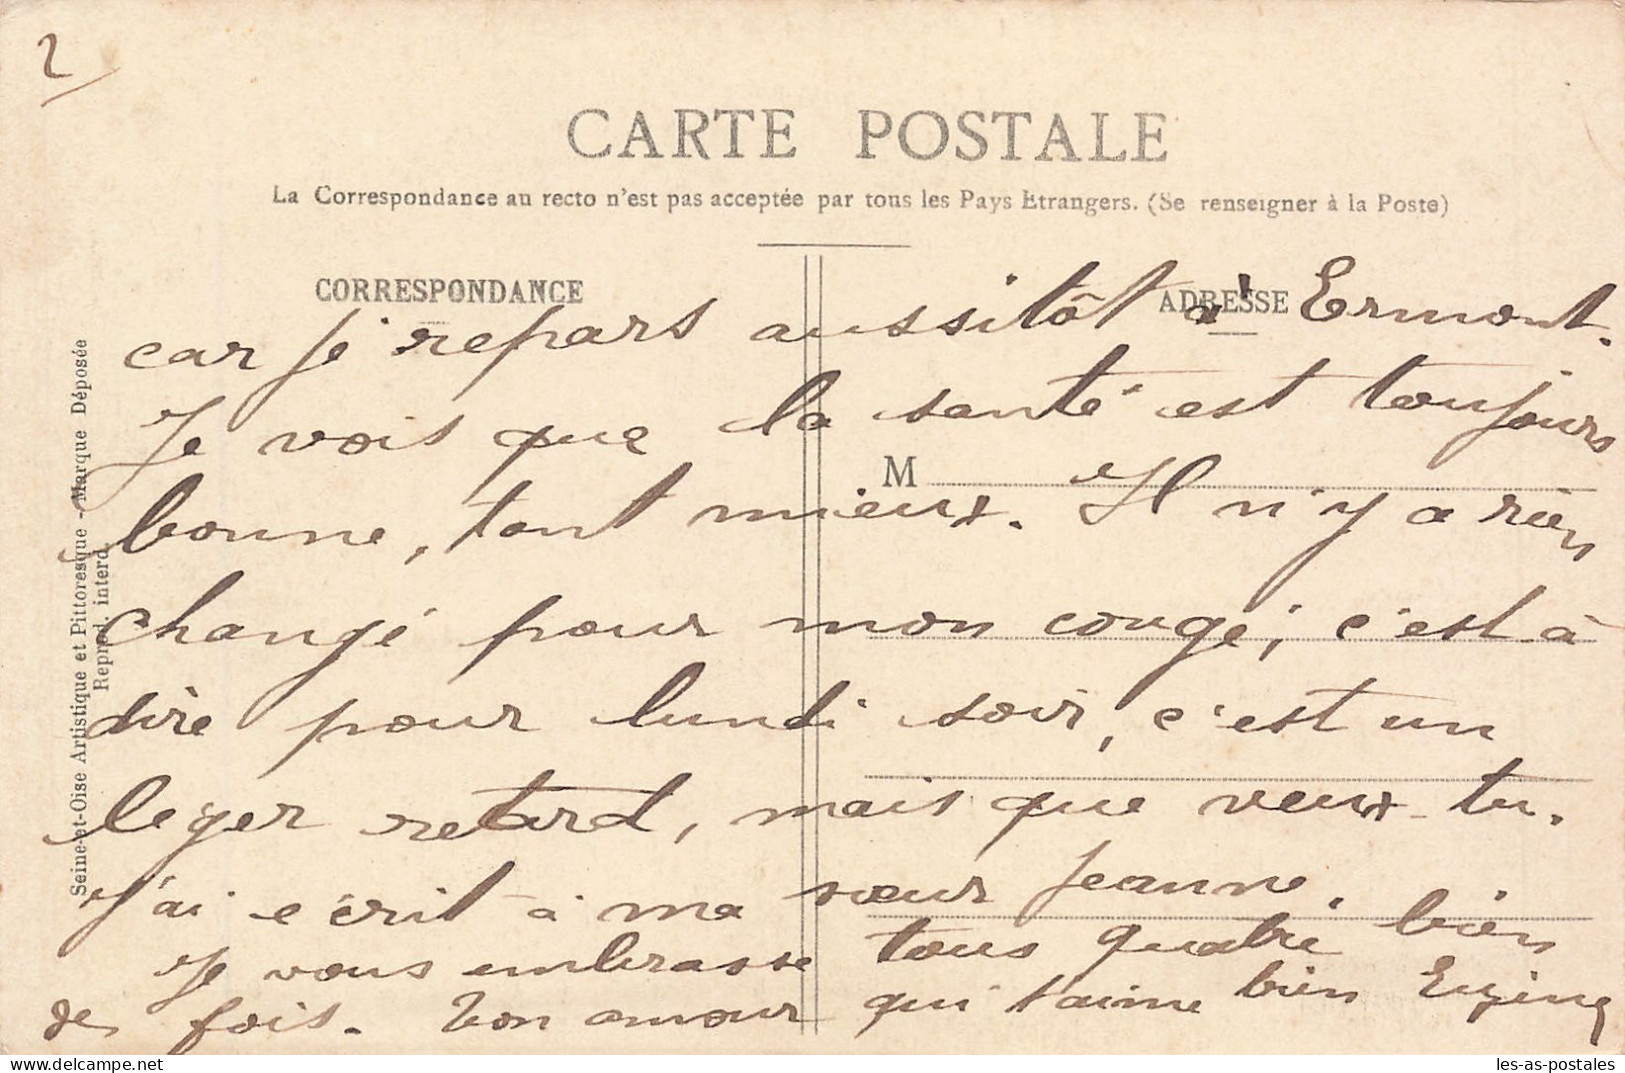 2
CARTE POSTALE
La Correspondance au recto n'est pas acceptée par tous les Pays Etrangers. (Se renseigner à la Poste)
CORRESPONDANCE
ADRESSE
M
Seine-et-Oise Artistique et Pittoresque - Marque Déposée
Reprod. interd.
car je repars aussitôt à Ermont.
Je vois que la santé est toujours
bonne, tant mieux. Il n'y a rien
changé pour mon congé, c'est à
dire pour lundi soir, c'est un
leger retard, mais que veux-tu.
J'ai écrit à ma sœur Jeanne.
Je vous embrasse tous quatre bien
des fois. Ton amour qui t'aime bien Eugène
les-as-postales